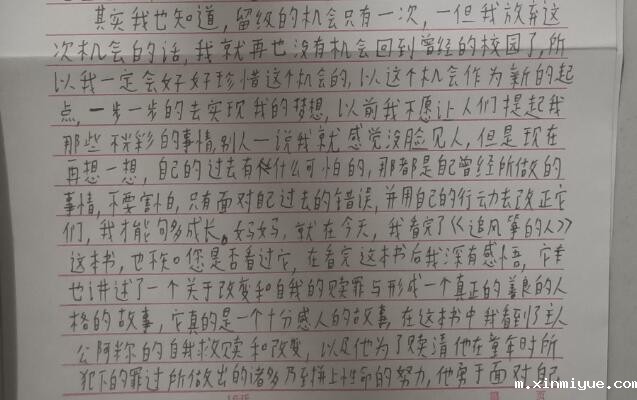 其实我也知道，留级的机会只有一次，一但我放弃这
次机会的话，我就再也没有机会回到曾经的校园了，所
以我一定会好好珍惜这个机会的，以这个机会作为新的起
点，一步一步的去实现我的梦想，以前我不愿让人们提起我
那些不光彩的事情，别人一说我就感觉没脸见人，但是现在
再想一想，自己的过去有什么可怕的，那都是自己曾经所做的
事情，不要害怕，只有面对自己过去的错误，并用自己的行动去改正它
们，我才能够多成长。妈妈，就在今天，我看完了《追风筝的人》
这本书，也不知您是否看过它，在看完这本书后我深有感悟，它
也讲述了一个关于改变和自我的赎罪与形成一个真正的善良的人
格的故事，它真的是一个十分感人的故事，在这本书中我看到了主人
公阿米尔的自我救赎和改变，以及他为了赎清他在童年时所
犯下的罪过所做出的诸多乃至拼上性命的努力，他勇于面对自己
m.xinmiyue.com